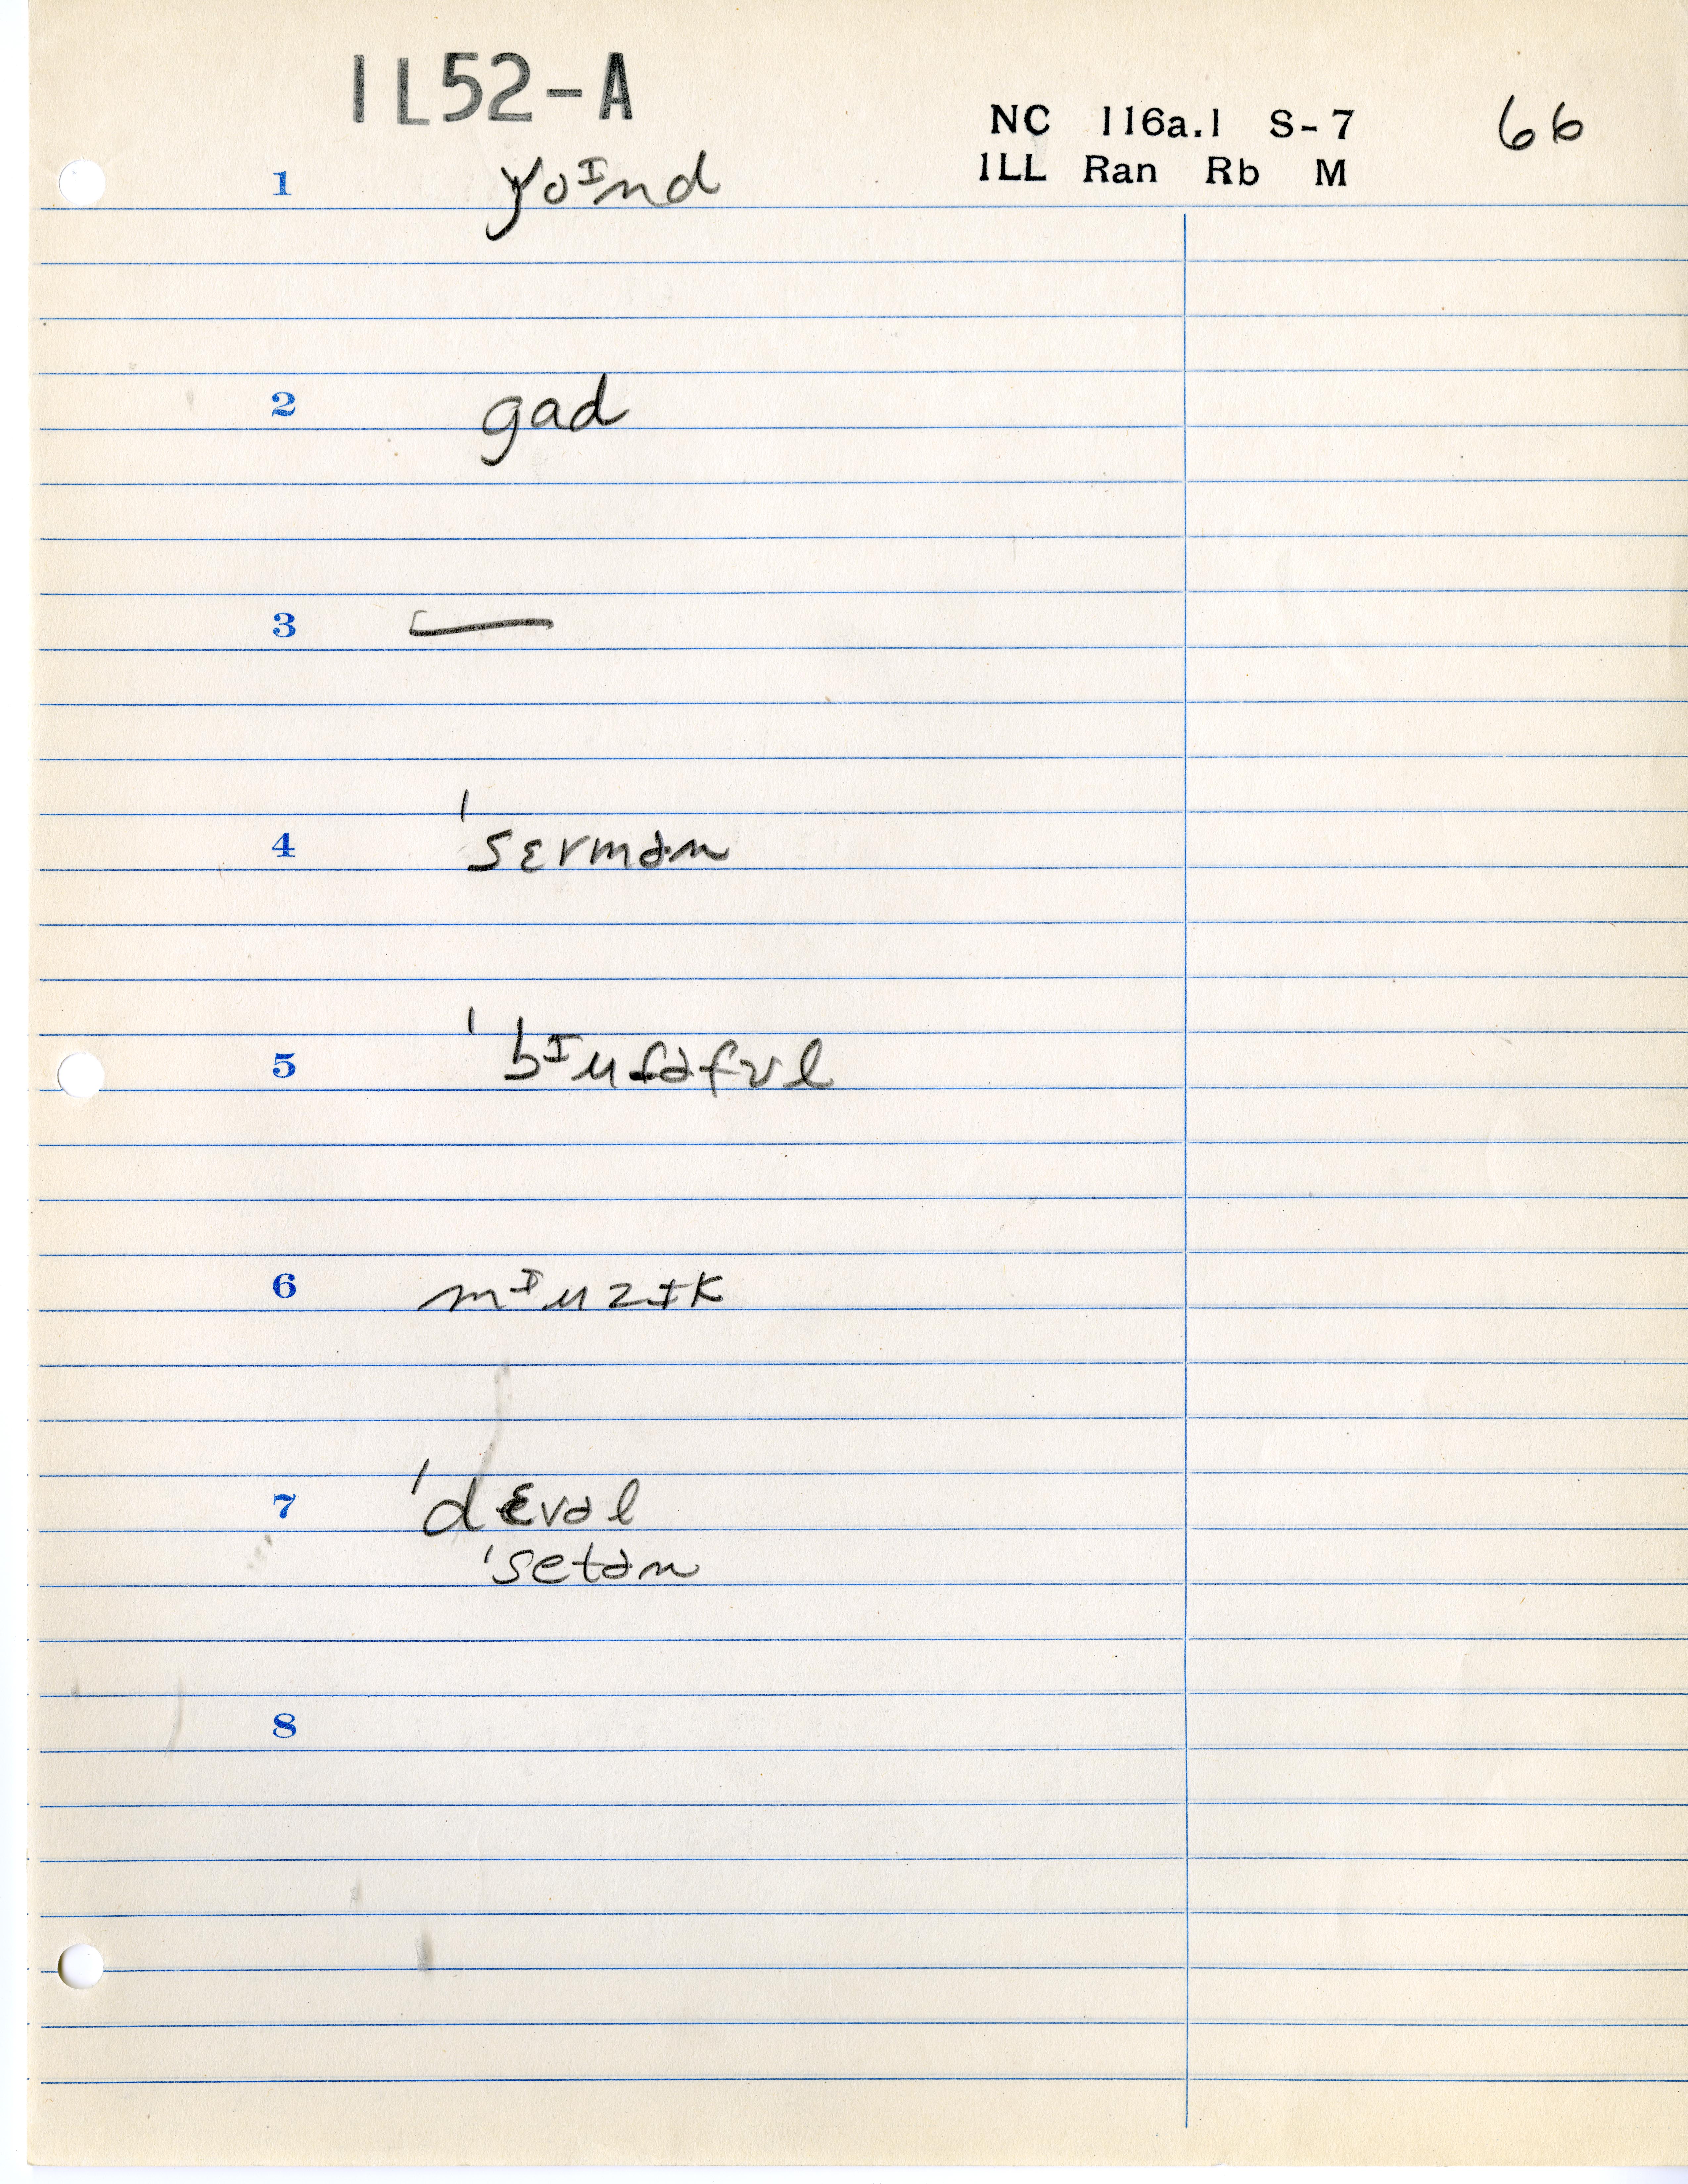 1L52-A
NC 116a.1 S-7 66
ILL Ran Rb M
1 ɣoᴵnd
2 gad
3 —
4 ˈsɛrmən
5 ˈbᴵufəfʊl
6 mᴵuzɪk
7 ˈdɛvəl
ˈsetən
8